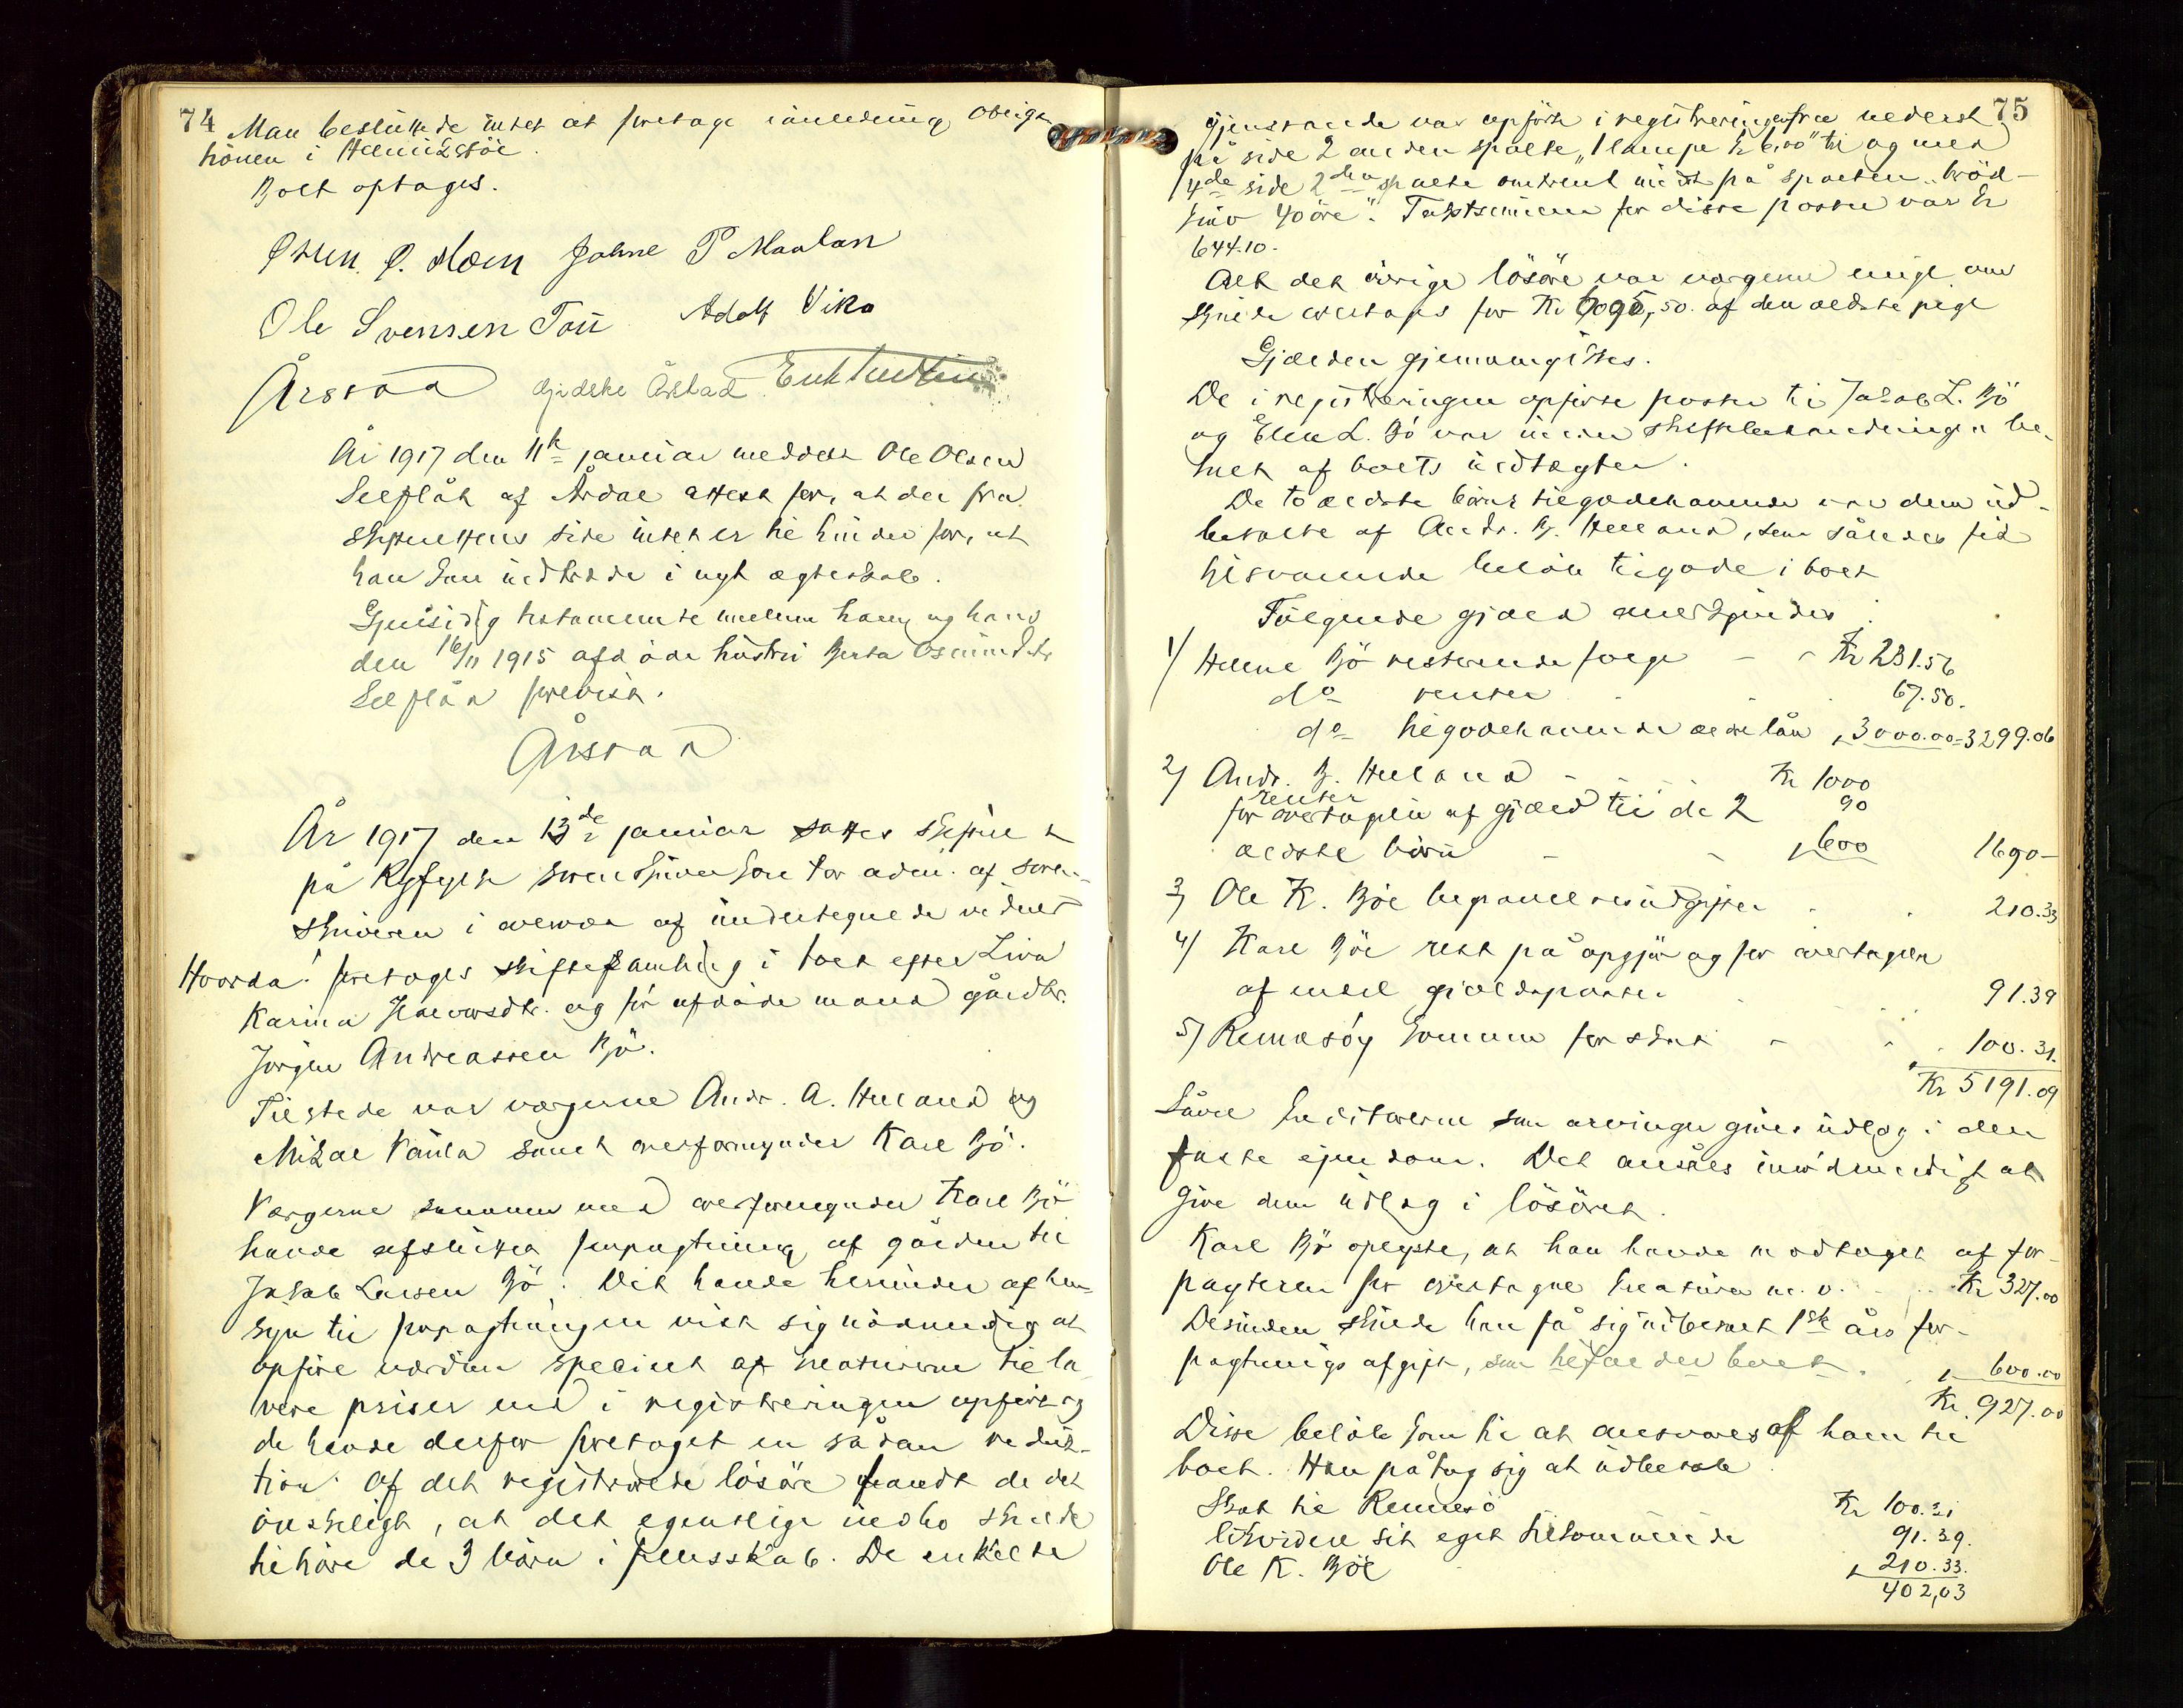 74
Man besluttede intet at foretage i anledning
i
Boet optages.
Osmn. O. Moen Johne P Maalan
Ole Svensen Tou Adolf Vika
Årstad
År 1917 den 11te januar meddelt Ole Olsen
Selflåt af Årdal attest for, at der fra
skifterettens side intet er til hinder for, at
han kan indtræde i nyt ægteskab.
Gjensidig testamente mellem ham og hans
den 16/11 1915 afdøde hustru Berta Osmundsdtr
Selflåt forevist.
Årstad
År 1917 den 13de januar sattes skifteret
på Ryfylke sorenskriverkontor adm. af soren-
skriveren i overvær af undertegnede vidner
Hvorda: foretoges skiftesamling i boet efter Liva
Karina Halvorsdtr. og før afdøde mand gårdbr.
Jørgen Andreassen Bø.
Tilstede var værgerne Andr. A. Helland og
Mikal Vaula samt overformynder Karl Bø.
Værgerne sammen med overformynder Karl Bø
havde afsluttet forpagtning af gården til
Jakob Larsen Bø. Det havde herunder af hen-
syn til forpagtningen vist sig nødvendig at
opføre værdien specielt af kreaturerne til la-
vere priser end i registreringen opført og
de havde derfor foretaget en sådan reduk-
tion. Af det registrerede løsøre fandt de det
ønskeligt, at det egentlige indbo skulde
tilhøre de 3 børn i fællesskab. De enkelte
75
gjenstande var opført i registreringen fra nederst
på side 2 anden spalte "1 lampe kr 6,00" til og med
4de side 2den spalte omtrent midt på spalten "brød-
40 øre". Takstsummen for disse poster var kr
644.10.
Alt det øvrige løsøre var værgerne enige om
skulde overtages for Kr 6095,50. af den ældste pige
Gjælden gjennemgikkes.
De i registreringen opførte poster til Jakob L. Bø
og Elen L. Bø var under skiftebehandlingen be-
talt af boets indtægter.
De to ældste børns tilgodehavende var dem ud-
betalte af Andr. B. Helland, som således fik
tilsvarende beløb tilgode i boet
Følgende gjæld anerkjendes
1) Helene Bø resterende folge - - Kr 231.56
do renter - - 67.50.
do tilgodehavende ældre lån " 3000.00 = 3299.06
2) Andr. B. Helland - - - Kr 1000
renter 90
for overtagelse af gjæld til de 2
ældste børn - - " 600 1690 -
3) Ole K. Bøe begravelsesudgifter - . 210.33
4) Karl Bøe rest på opgjør og for overtagelse
af endel gjældsposter 91.39
5) Rennesøy kommune for skat - - " 100.31.
Kr 5191.09
Såvel kreditorerne som arvinger gives udlæg i den
faste ejendom. Det ansåes unødvendigt at
give dem udlæg i løsøret.
Karl Bø oplyste, at han havde modtaget af for-
pagteren for overtagne kreaturer m. v. . . . Kr 327.00
Desuden skulde han få sig udbetalt 1ste års for-
pagtningsafgift, som tilfalder boet . . " 600.00
Kr. 927.00
Disse beløb kom til at ansvares af ham til
boet. Han påtog sig at udbetale
Skat til Rennesø Kr 100.31
likvidere sit eget tilkommende 91.39.
Ole K. Bøe " 210.33.
402,03